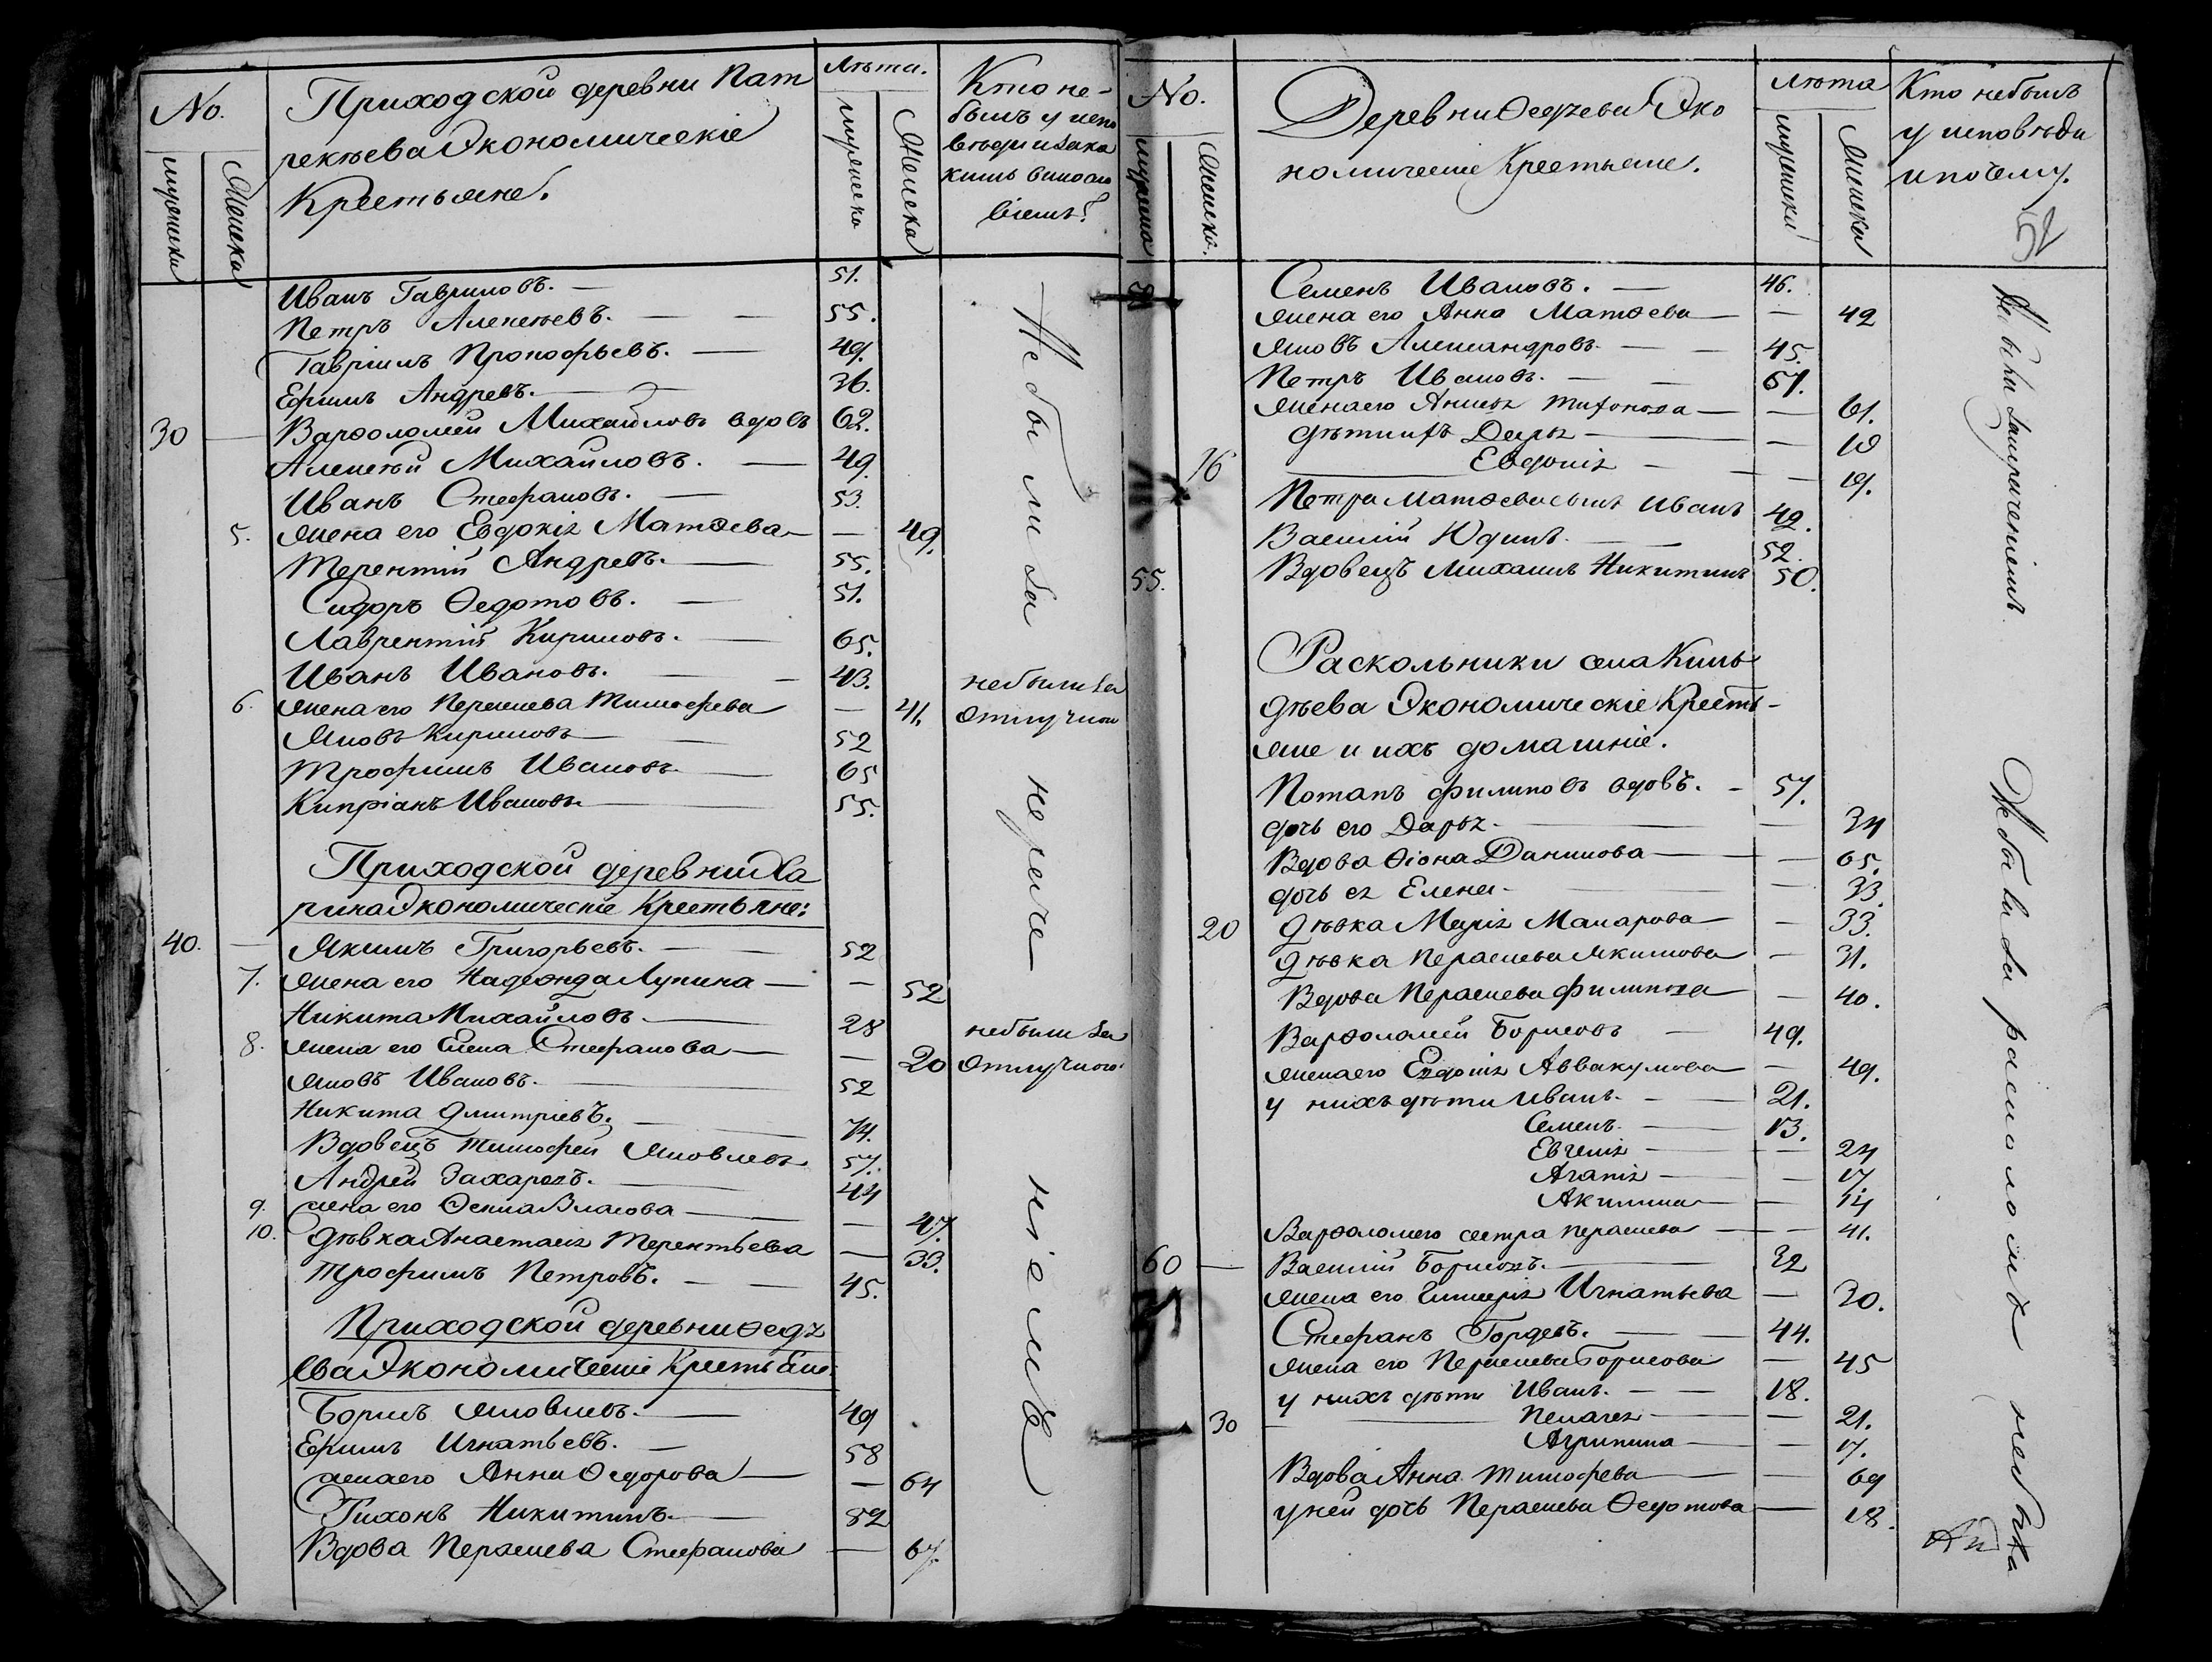 No.
мужеска
Женска
Приходской деревни Пат
рекѣева Экономическіе
Крестьяне.
Лѣта.
мужеска
Женска
Кто не-
былъ у испо
вѣди и за ка
кимъ виносло
віемъ?
Иванъ Гавриловъ. — 51.
Петръ Алексѣевъ. — — 55.
Гавріилъ Прокофьевъ. — 49.
Ефимъ Андревъ. — 36.
30 — Варѳоломей Михайловъ вдовъ 62.
Алексѣй Михайловъ. — 49.
Иванъ Стефановъ. — 53.
5. жена его Евдокія Матѳева — — 49.
Терентій Андревъ. — 55.
Сидоръ Ѳедотовъ. — 51.
Лаврентій Кириловъ. — 65.
Иванъ Ивановъ. — — 43. не были за
6. жена его Параскева Тимофева — 41. отлучкой
Яковъ Кириловъ — 52
Трофимъ Ивановъ — 65
Кипріанъ Ивановъ — 55.
Приходской деревни Ха
рина Экономическіе Крестьяне:
40. — Якимъ Григорьевъ. — 52
7. жена его Надежда Лупина — — 52
Никита Михайловъ — 28 не были за
8. жена его Елена Стефанова — — 20 отлучкою
Яковъ Ивановъ. — 52
Никита Дмитріевъ. — 74.
Вдовецъ Тимофей Яковлевъ 57.
Андрей Захаровъ. — 44
9. жена его Ѳекла Власова — — 47.
10. дѣвка Анастасія Терентьева — 33.
Трофимъ Петровъ. — — 45.
Приходской деревни Ѳедя
ева Экономическіе Крестьяне.
Борисъ Яковлевъ. — 49
Ефимъ Игнатьевъ. — 58
жена его Анна Ѳедорова — — 64
Тихонъ Никитинъ. — 82
Вдова Параскева Стефанова — 67.
Не были за нераченіемъ
No.
мужеска
Женска.
Деревни Ѳедяева Эко
номическіе Крестьяне.
лѣта
мужеска
Женска
Кто небылъ
у исповѣди
и почему.
52
Семенъ Ивановъ. — 46.
жена его Анна Матѳева — — 42
Яковъ Александровъ — — 45.
Петръ Ивановъ. — — 67.
жена его Анисья Тихонова — — 61.
дѣти ихъ Дарья — — 18
16 Евдокія — — 19.
Петра Матѳева сынъ Иванъ 42.
Василій Юдинъ. — — 52.
55. Вдовецъ Михаилъ Никитинъ 50.
Раскольники села Киль
дѣева Экономическіе Кресть-
яне и ихъ домашніе.
Потапъ Филиповъ вдовъ. — 57.
дочь его Дарья — — 34
Вдова Ѳіона Данилова — — 65.
дочь ея Елена — — 33.
20 дѣвка Марія Макарова — — 33.
дѣвка Параскева Якимова — 31.
Вдова Параскева Филипова — 40.
Варѳоломей Борисовъ — 49.
жена его Евдокія Аввакумова — 49.
у нихъ дѣти Иванъ. — — 21.
Семенъ. — 13.
Евгенія — — 24
Агапія — — 17.
Акилина — — 14
Варѳоломея сестра Параскева — — 41.
60 — Василій Борисовъ. — 32
жена его Гликерія Игнатьева — 30.
Стефанъ Гордевъ. — — 44.
жена его Параскева Борисова — 45
у нихъ дѣти Иванъ. — — 18.
30 — Пелагея — — 21.
Агрипина — — 17.
Вдова Анна Тимофева — — 69
у ней дочь Параскева Ѳедотова — 18.
Не были за нераченіемъ.
Не были за расколомъ не быха